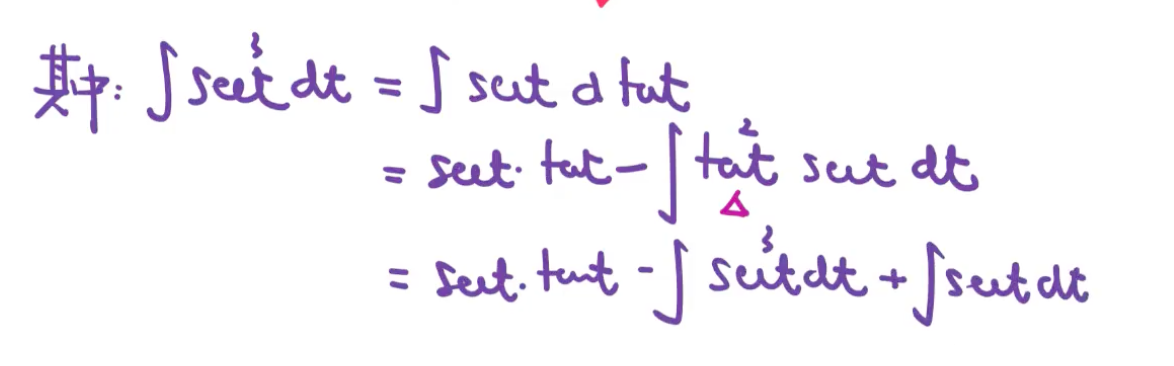 其中: ∫sec³t dt = ∫ sect d tant
= sect· tant - ∫ tan²t sect dt
△
= sect· tant - ∫ sec³t dt + ∫sect dt